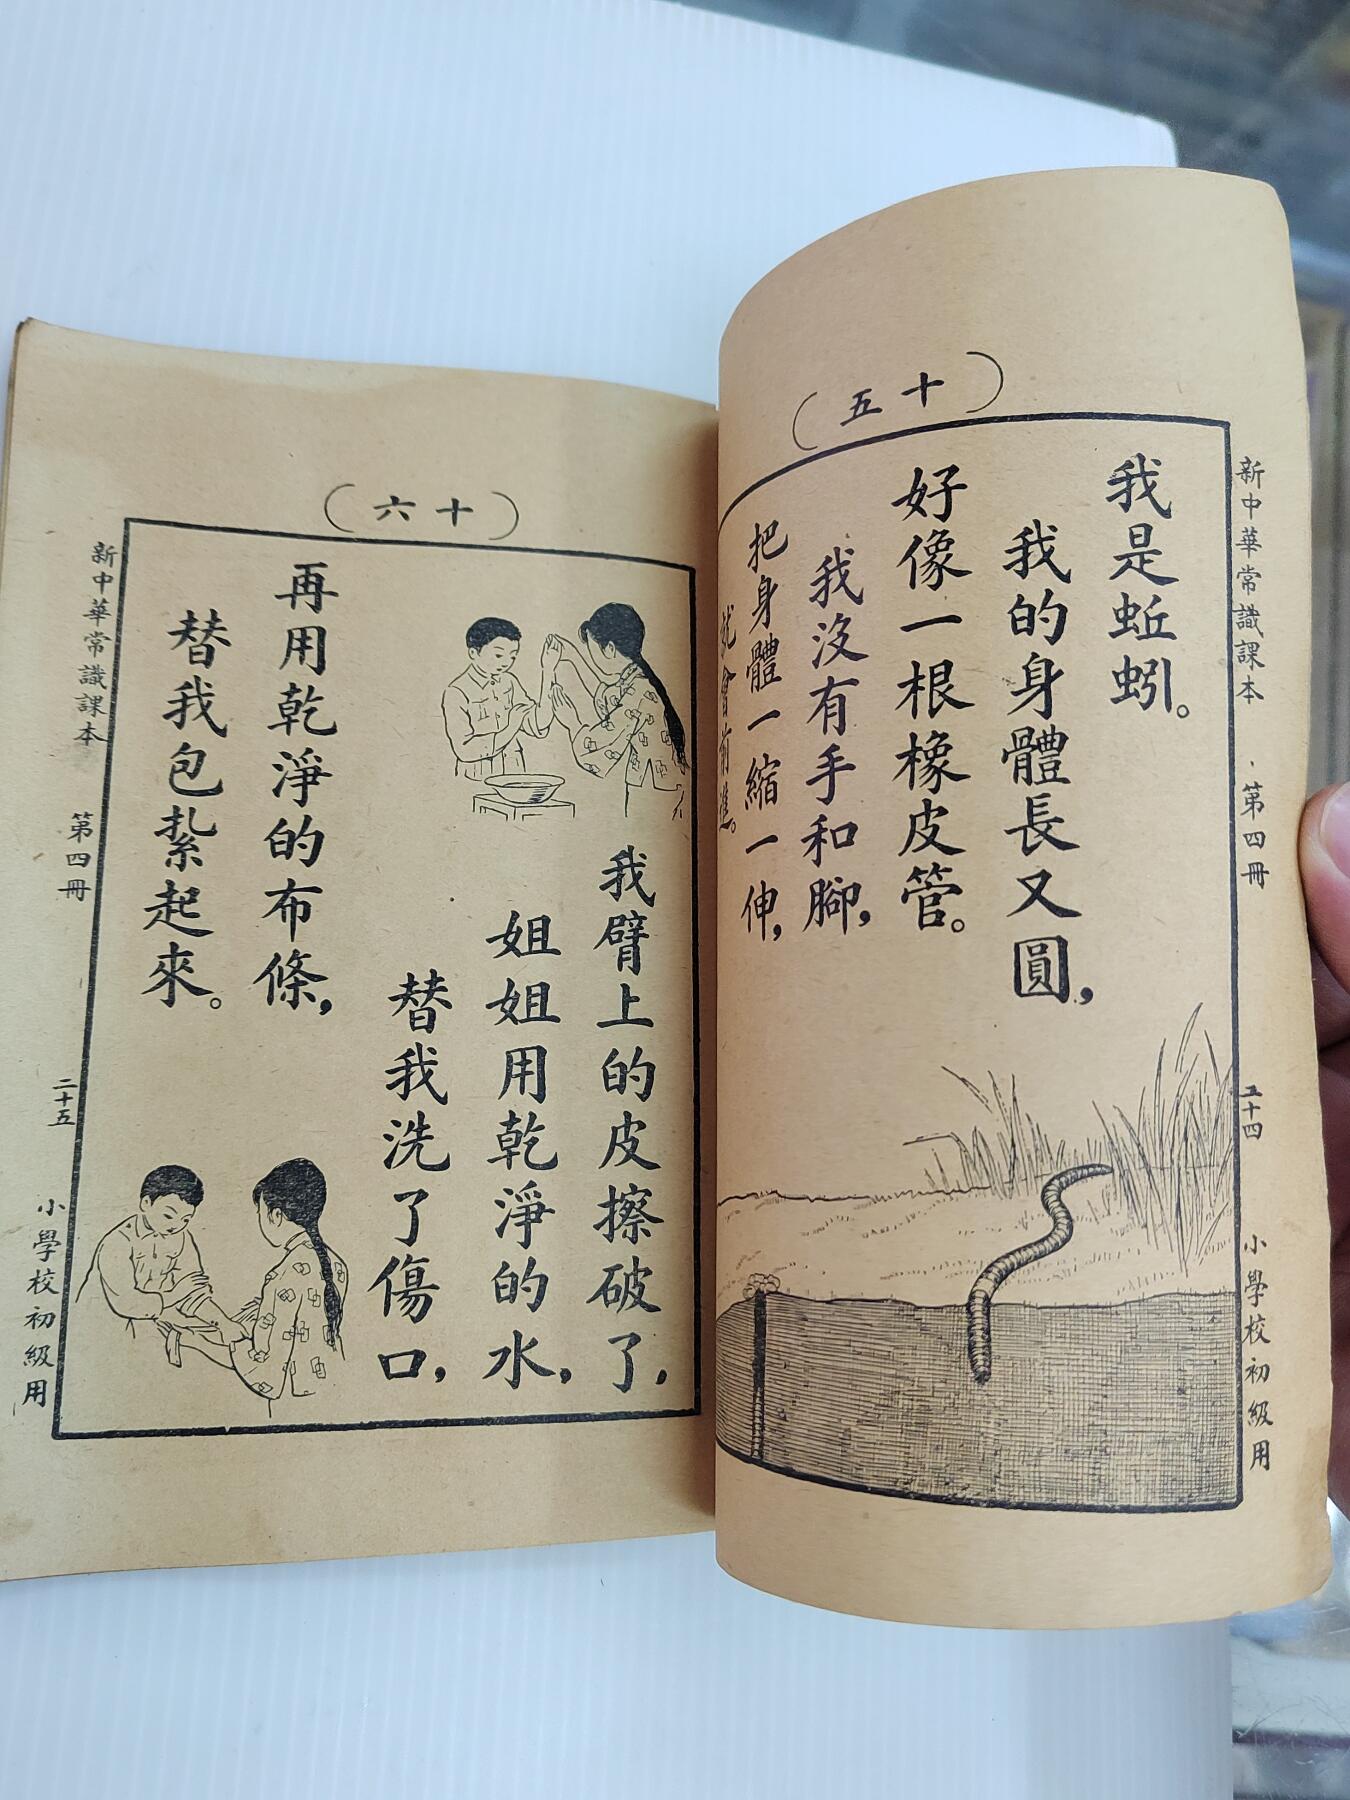 （十五）
新中華常識課本 第四冊 二十四 小學校初級用
我是蚯蚓。
我的身體長又圓，
好像一根橡皮管。
我沒有手和腳，
把身體一縮一伸，
就會前進。
（十六）
我臂上的皮擦破了，
姐姐用乾淨的水，
替我洗了傷口，
再用乾淨的布條，
替我包紮起來。
新中華常識課本 第四冊 二十五 小學校初級用